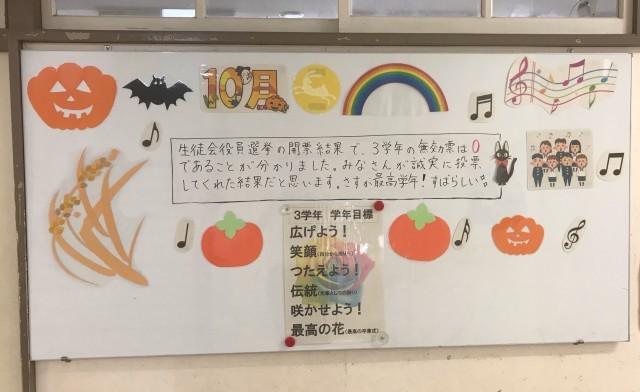 10月
生徒会役員選挙の開票結果で、3学年の無効票は0
であることが分かりました。みなさんが誠実に投票
してくれた結果だと思います。さすが最高学年!すばらしい。
3学年 学年目標
広げよう!
笑顔
つたえよう!
伝統
咲かせよう!
最高の花(最高の卒業式)